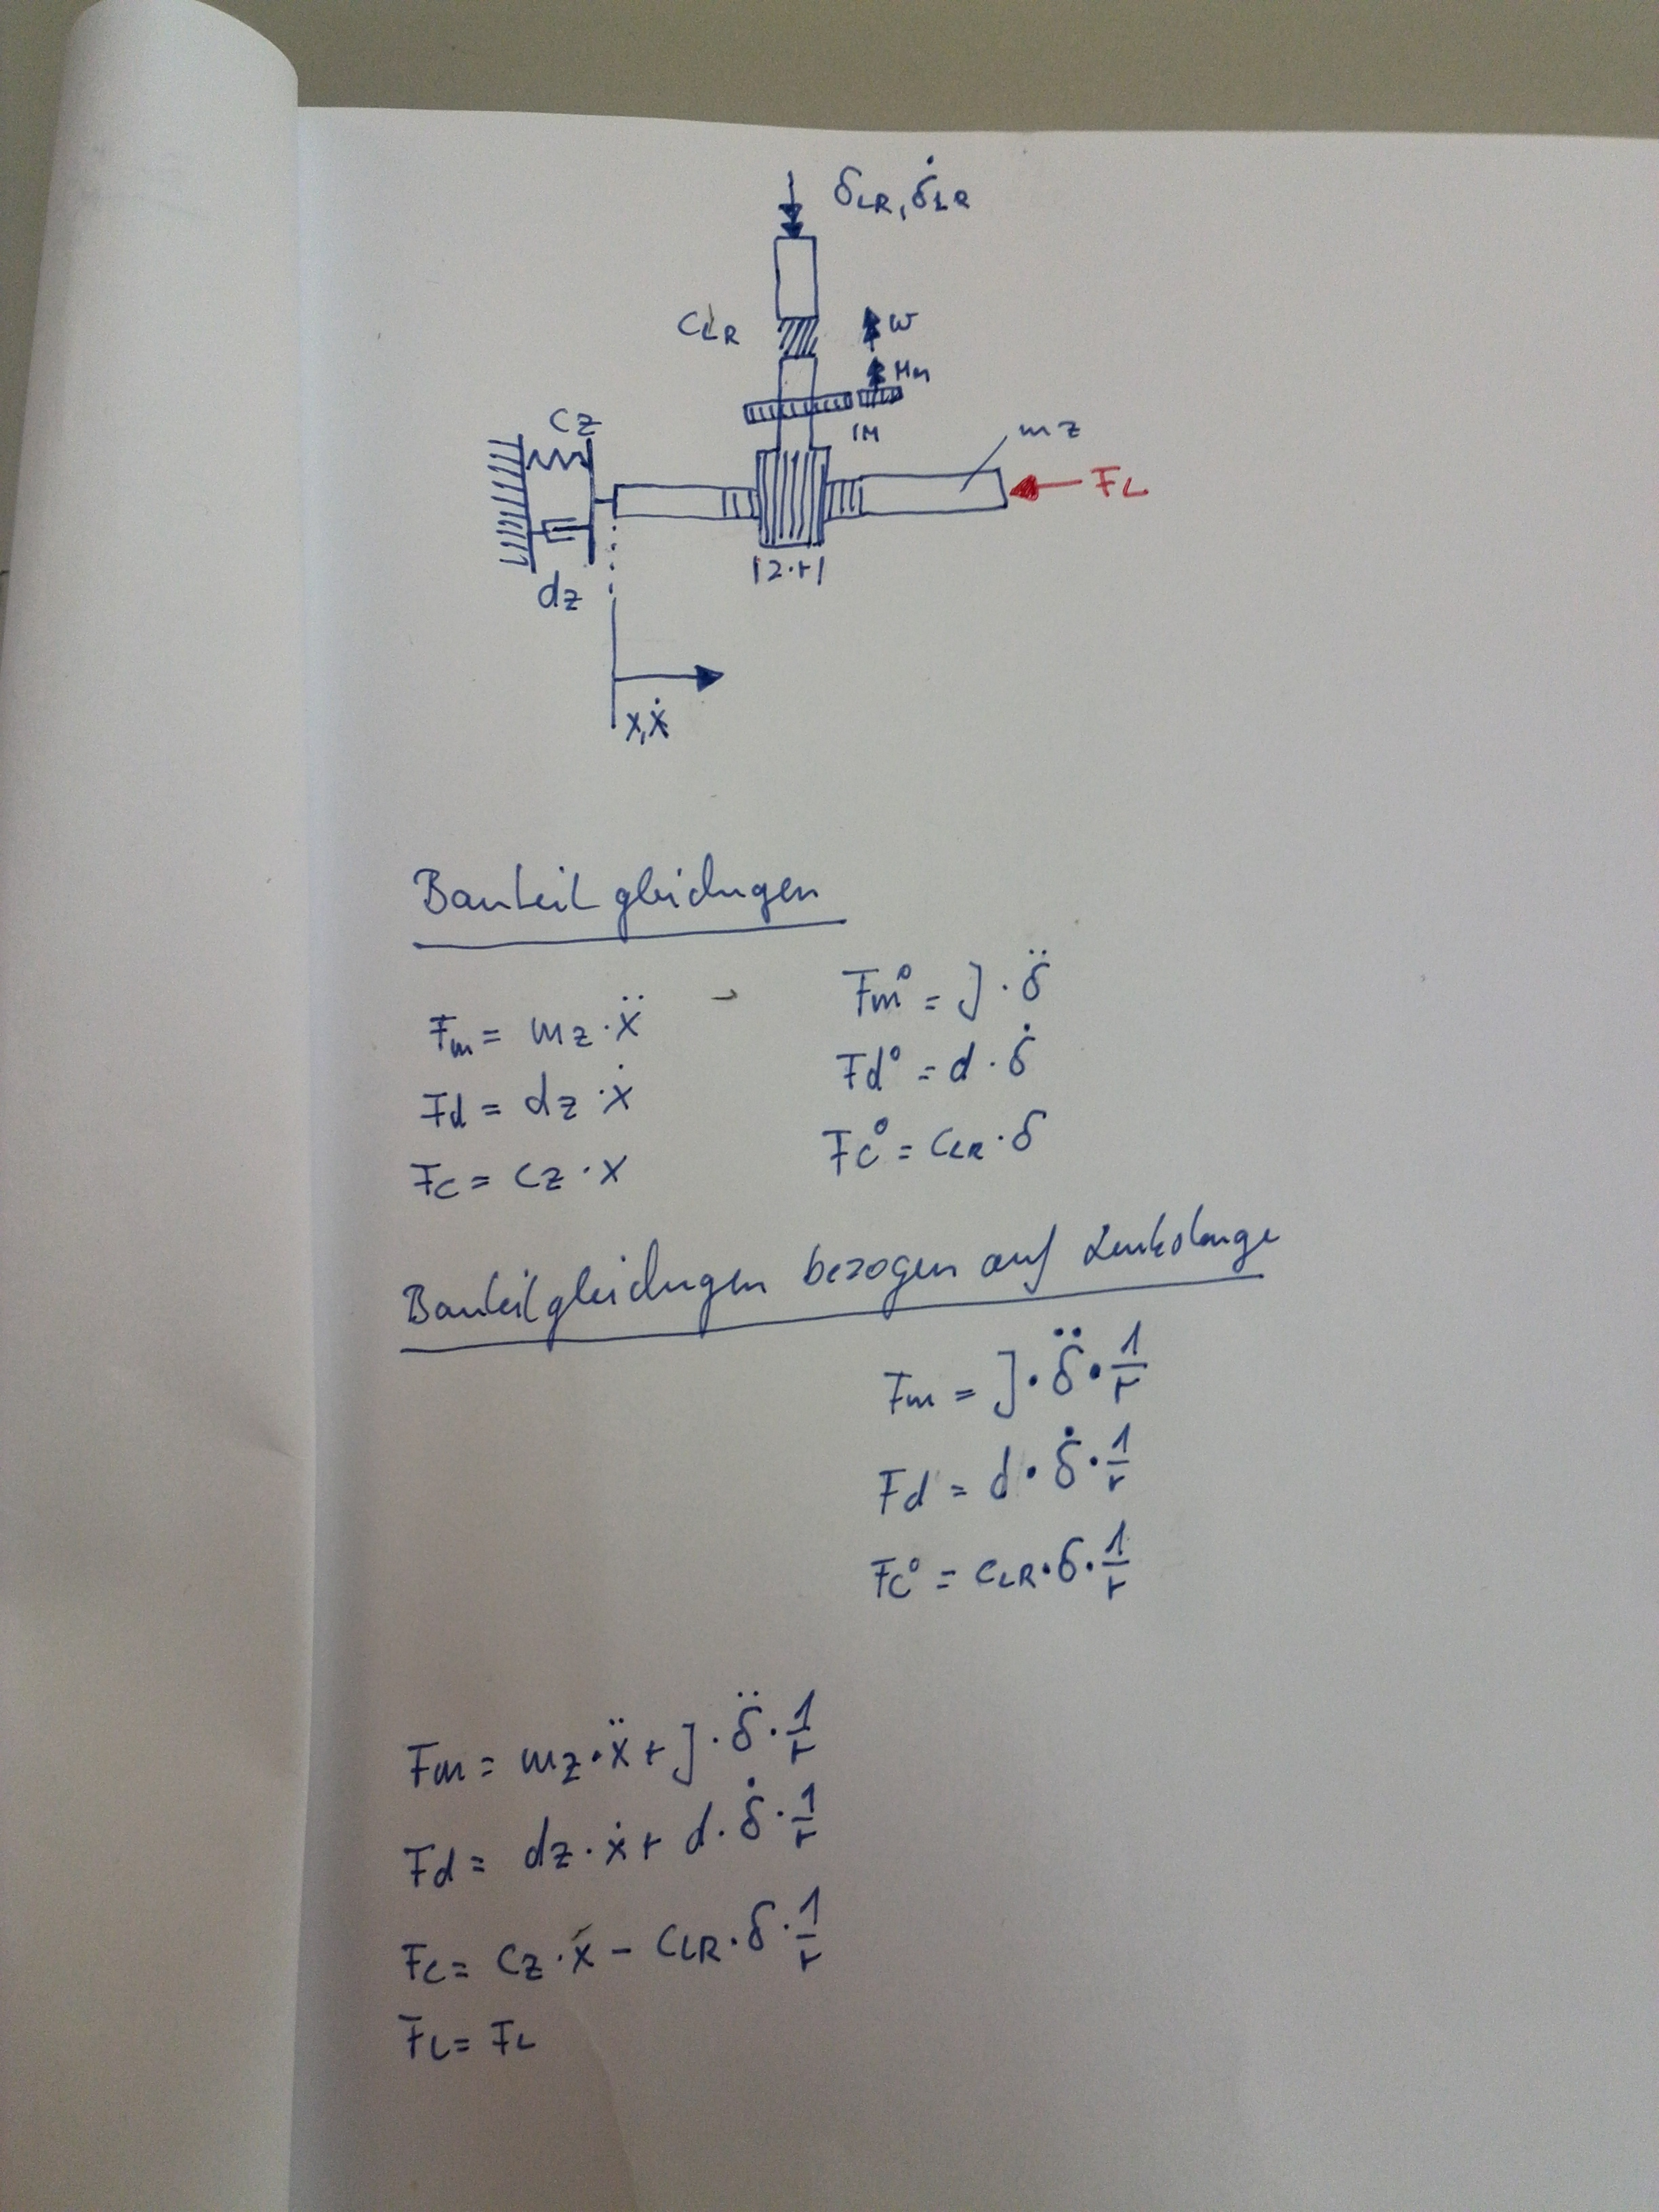 δLR, δ̇LR
CLR
ω
Mm
iM
cz
mz
FL
|2·r|
dz
x, ẋ
Bauteilgleichugen
Fm = mz · ẍ
Fd = dz · ẋ
Fc = cz · x
Fm° = J · δ̈
Fd° = d · δ̇
Fc° = cLR · δ
Bauteilgleichugen bezogen auf Lenkstange
Fm = J · δ̈ · 1/r
Fd = d · δ̇ · 1/r
Fc° = cLR · δ · 1/r
Fm = mz · ẍ + J · δ̈ · 1/r
Fd = dz · ẋ + d · δ̇ · 1/r
Fc = cz · x − cLR · δ · 1/r
FL = FL